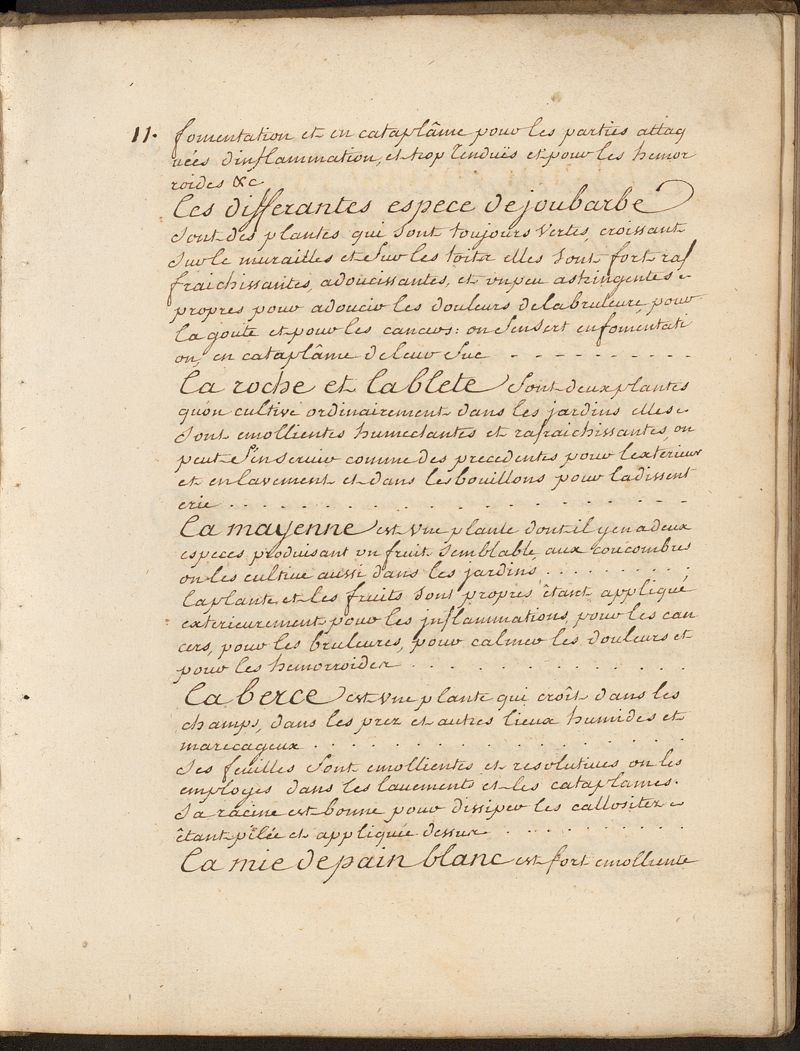 11. fomentation et en cataplâme pour les parties attaq
uées d'inflammation, et trop tenduës et pour les hemor
roides &c
Les differantes espece de joubarbe
Sont des plantes qui sont toujours vertes, croissant
Sur le murailles et Sur les toits elles Sont fort raf
fraichissantes, adoucissantes, et un peu astringentes
propres pour adoucir les douleurs de la bruleure, pour
la goute et pour les cancers: on s'en sert en fomentati
on, en cataplâme de leur Suc - - - - - - - - - -
La roche et la blete Sont deux plantes
qu'on cultive ordinairement dans les jardins elles
Sont emollientes humectantes et rafraichissantes, on
peut S'en servir comme des precedentes pour l'exterieur
et en lavement et dans les bouillons pour la dissent
erie . . . . . . . . . . . . . . . . . . . .
La mayenne est une plante dont il y en a deux
especes, produisant un fruit Semblable aux concombres
on les cultive aussi dans les jardins . . . . . . . . .
La plante et les fruits Sont propres êtant appliqué
exterieurement pour les inflammations, pour les can
cers, pour les bruleures, pour calmer les douleurs et
pour les hemorroides . . . . . . . . . . . .
La berce est une plante qui croît dans les
champs, dans les prez et autres lieux humides et
marecageux . . . . . . . . . . . . . . . .
Ses feuilles Sont emollientes et resolutives on les
employes dans les lavements et les cataplames.
Sa racine est bonne pour dissiper les callositez
êtant pilée et appliquée dessus . . . . . . . . .
La mie de pain blanc est fort emolliente